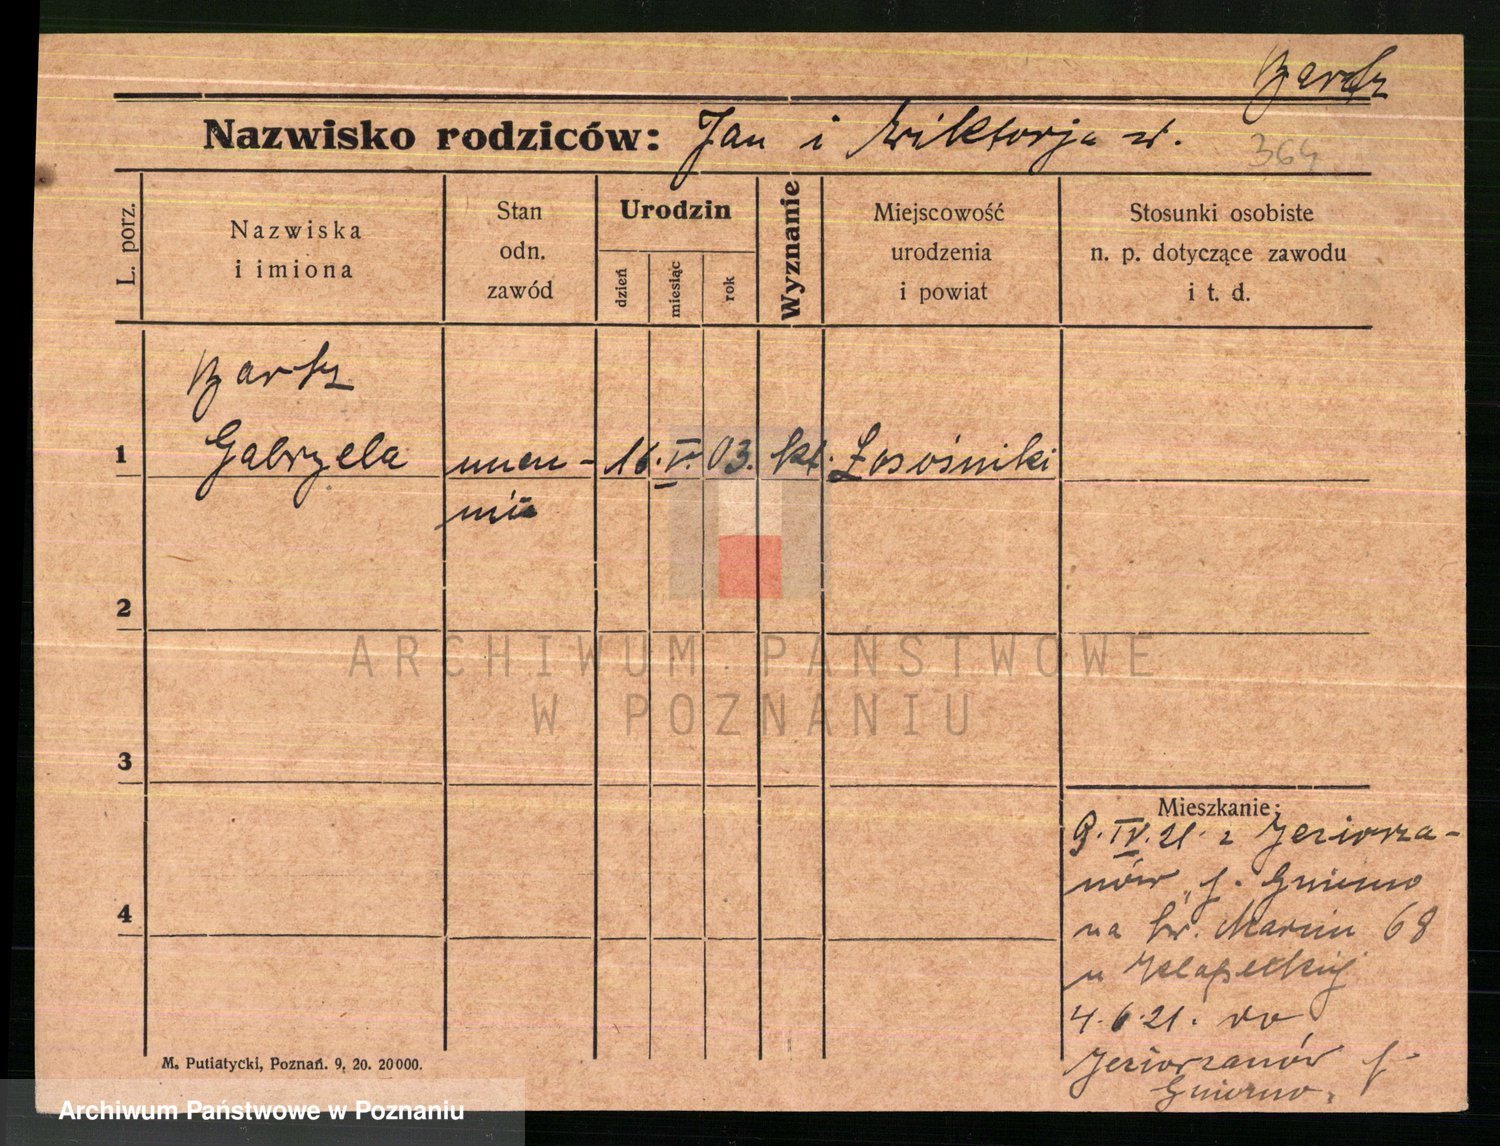 Bartz
Nazwisko rodziców: Jan i Wiktorja z.
364
L. porz.
Nazwiska
i imiona
Stan
odn.
zawód
Urodzin
dzień
miesiąc
rok
Wyznanie
Miejscowość
urodzenia
i powiat
Stosunki osobiste
n. p. dotyczące zawodu
i t. d.
Bartz
1 Gabryela 16. V. 03. kt. Łosośniki
2
3
4
Mieszkanie:
9. IV. 21. z Jeziorza-
nów p. Gniezno
na św. Marcin 68
u
4. 6. 21. do
Jeziorzanów p.
Gniezno.
M. Putiatycki, Poznań. 9. 20. 20000.
ARCHIWUM PAŃSTWOWE
W POZNANIU
Archiwum Państwowe w Poznaniu